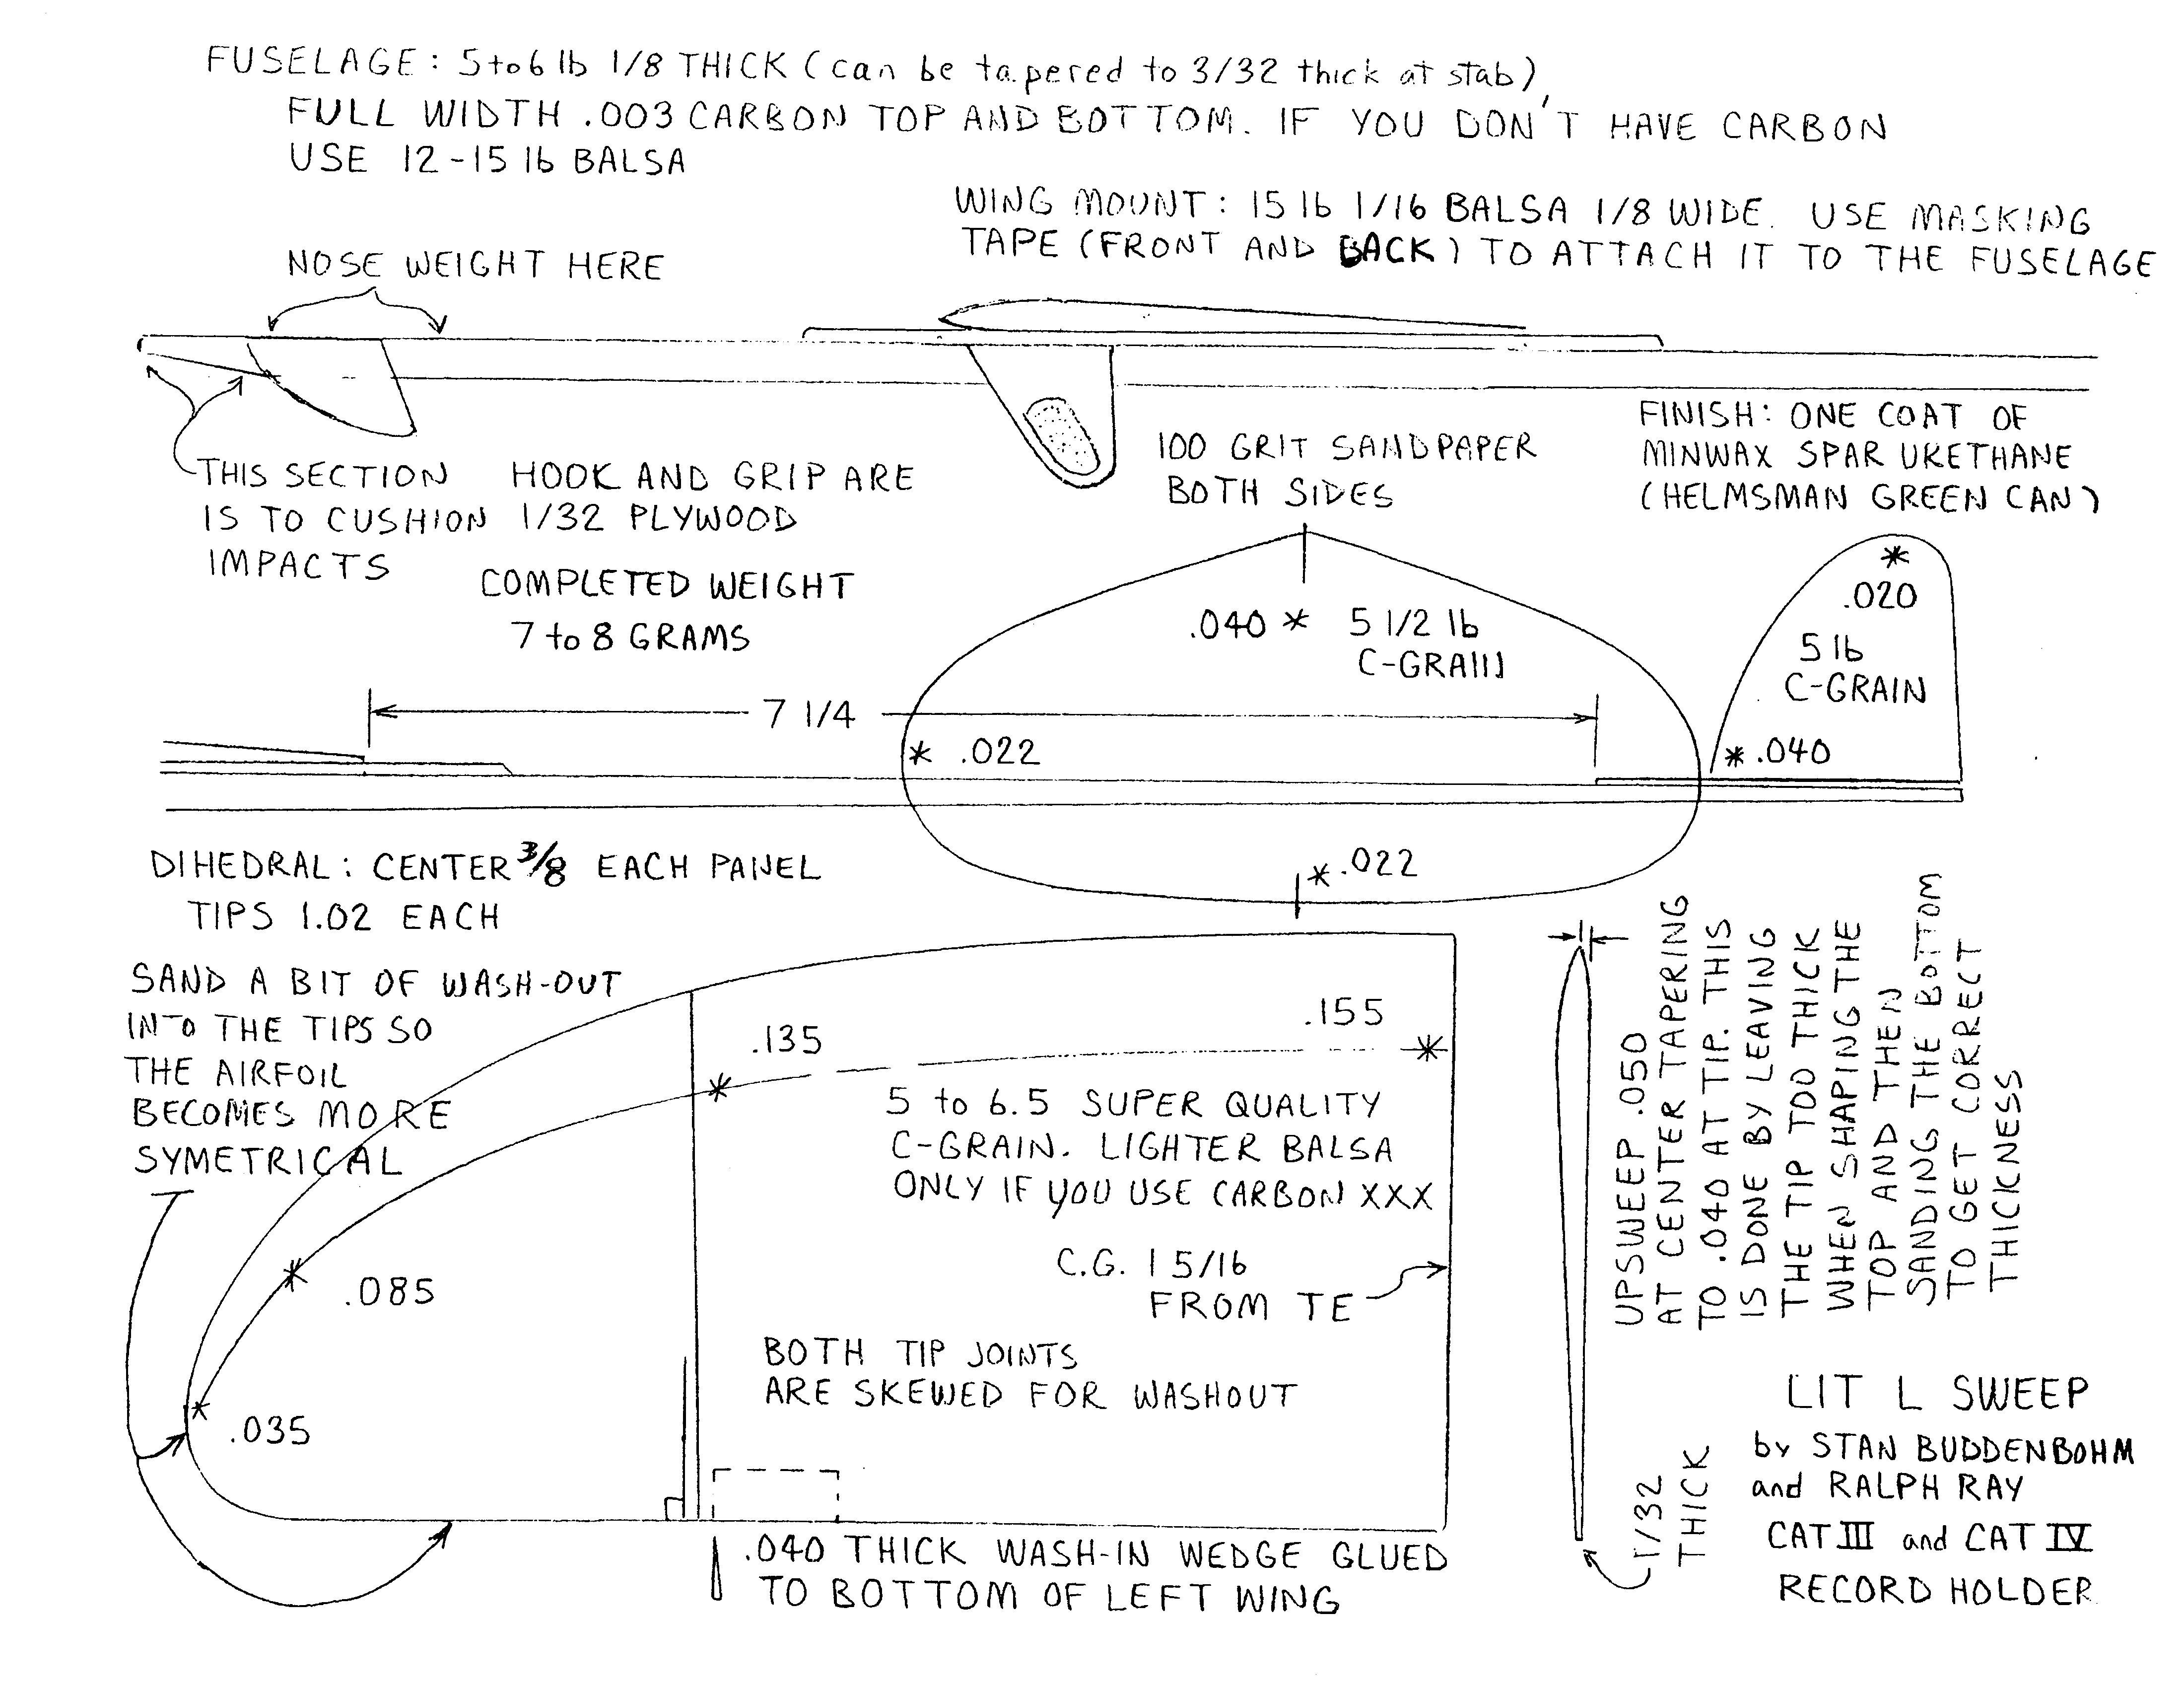 FUSELAGE: 5 to 6 lb 1/8 THICK (can be tapered to 3/32 thick at stab),
FULL WIDTH .003 CARBON TOP AND BOTTOM. IF YOU DON'T HAVE CARBON
USE 12-15 lb BALSA
WING MOUNT: 15 lb 1/16 BALSA 1/8 WIDE. USE MASKING
TAPE (FRONT AND BACK) TO ATTACH IT TO THE FUSELAGE
NOSE WEIGHT HERE
THIS SECTION
IS TO CUSHION
IMPACTS
HOOK AND GRIP ARE
1/32 PLYWOOD
COMPLETED WEIGHT
7 to 8 GRAMS
100 GRIT SANDPAPER
BOTH SIDES
FINISH: ONE COAT OF
MINWAX SPAR URETHANE
(HELMSMAN GREEN CAN)
.040 * 5 1/2 lb
C-GRAIN
*
.020
5 lb
C-GRAIN
* .040
7 1/4
* .022
* .022
DIHEDRAL: CENTER 3/8 EACH PANEL
TIPS 1.02 EACH
SAND A BIT OF WASH-OUT
INTO THE TIPS SO
THE AIRFOIL
BECOMES MORE
SYMETRICAL
.135
.155
5 to 6.5 SUPER QUALITY
C-GRAIN. LIGHTER BALSA
ONLY IF YOU USE CARBON XXX
.085
C.G. 1 5/16
FROM TE
BOTH TIP JOINTS
ARE SKEWED FOR WASHOUT
.035
.040 THICK WASH-IN WEDGE GLUED
TO BOTTOM OF LEFT WING
UPSWEEP .050
AT CENTER TAPERING
TO .040 AT TIP. THIS
IS DONE BY LEAVING
THE TIP TOO THICK
WHEN SHAPING THE
TOP AND THEN
SANDING THE BOTTOM
TO GET CORRECT
THICKNESS
1/32
THICK
LIT L SWEEP
by STAN BUDDENBOHM
and RALPH RAY
CAT III and CAT IV
RECORD HOLDER